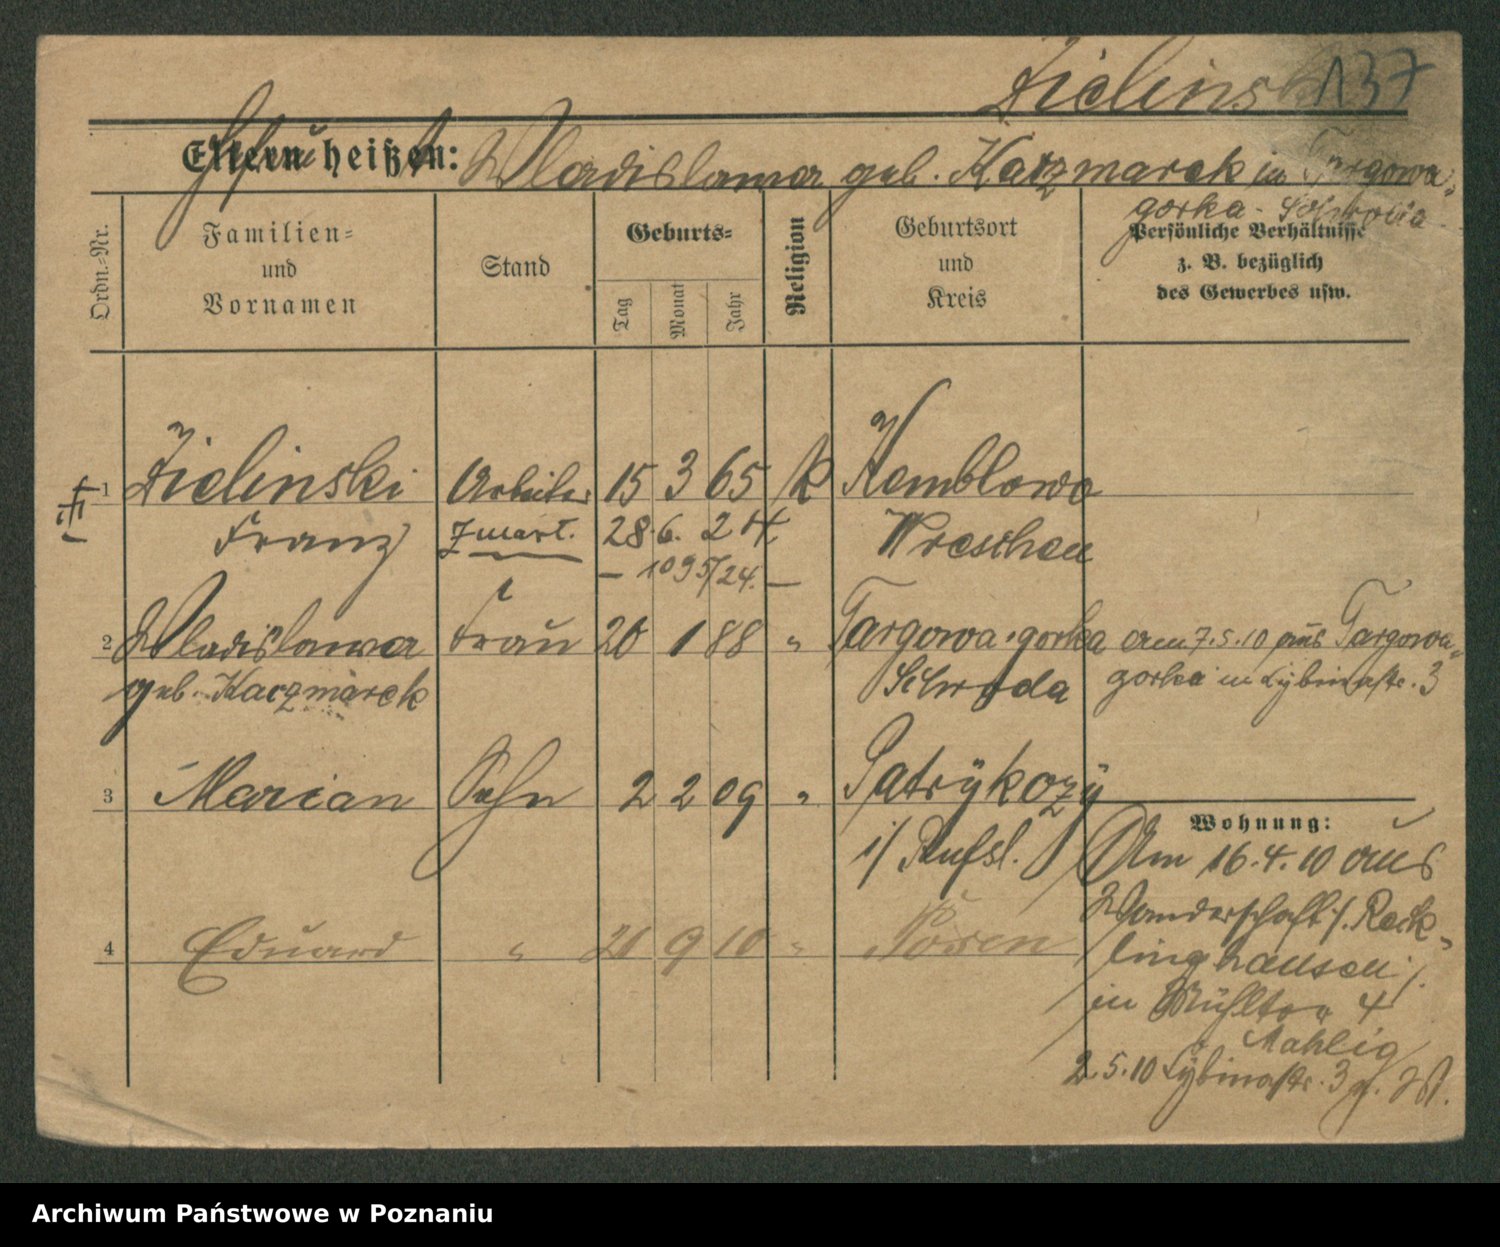 Zielinski 137
Eltern heißen: Wladislawa geb. Katzmarek in Targowa-
gorka - Schroda
Ordn.-Nr.
Familien-
und
Vornamen
Stand
Geburts-
Tag
Monat
Jahr
Religion
Geburtsort
und
Kreis
Persönliche Verhältnisse
z. B. bezüglich
des Gewerbes usw.
1 Zielinski Arbeiter 15 3 65 k Kemblowo
Franz 28. 6. 24. Wreschen
1095/24.
2 Wladislawa Frau 20 1 88 " Targowa-gorka am 7.5.10 aus Targowa-
geb. Kaczmarek Schroda gorka in Lybinastr. 3
3 Marian Sohn 2 2 09 " Patrykozy
Wohnung:
Am 16.4.10 aus
Wanderschaft /. Reck-
linghausen /.
4 Eduard " 20 9 10 " Posen
in Mühltor 4
Mahlig
2.5.10 Lybinastr. 3
Archiwum Państwowe w Poznaniu